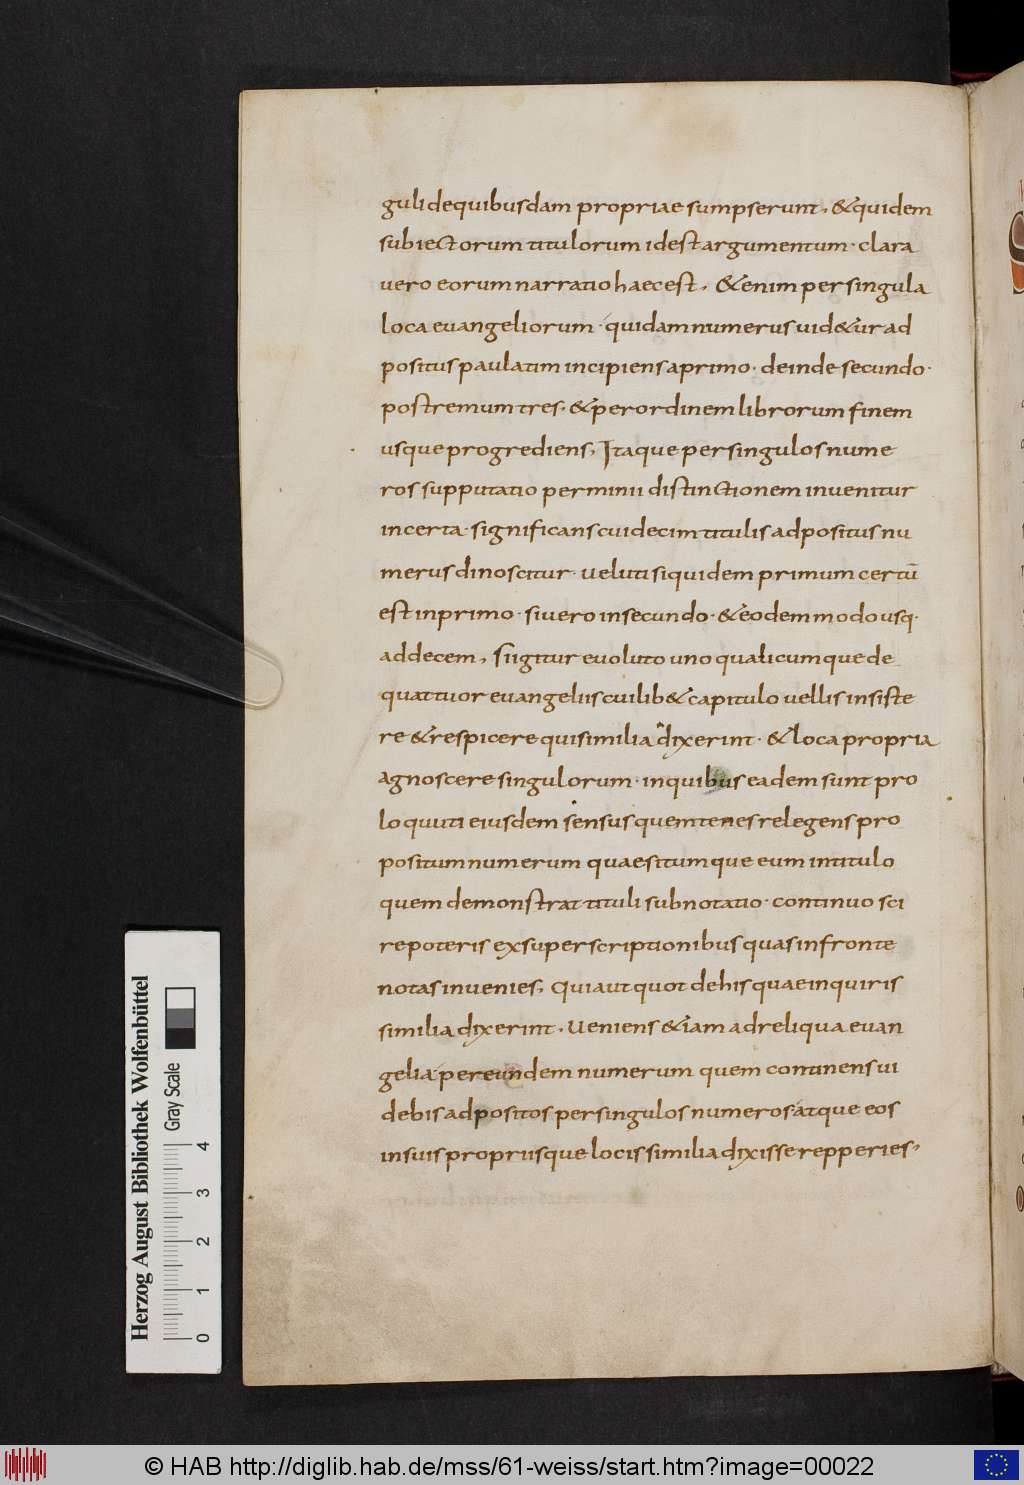 guli dequibusdam propriae sumpserunt, &quidem
subiectorum titulorum idest argumentum· clara
vero eorum narratio haecest, &enim per singula
loca euangeliorum· quidam numerus uid&ur ad
positus paulatim incipiens aprimo· deinde secundo·
postremum tres, &per ordinem librorum finem
usque progrediens, Itaque per singulos nume
ros supputatio per minii distinctionem inuenitur
incerta· significans cui decim titulis adpositus nu
merus dinoscitur· ueluti siquidem primum certū
est inprimo· si uero insecundo· &eodem modo usq·
addecem, Si igitur euoluto uno qualicumque de
quattuor euangeliis cuilib& capitulo uellis insiste
re &respicere qui similia dixerint· &loca propria
agnoscere singulorum· inquibus eadem sunt pro
loquuti eiusdem sensus quem tenes relegens pro
positum numerum quaesitumque eum intitulo
quem demonstrat tituli subnotatio· continuo sci
repoteris ex superscriptionibus quas infronte
notas inuenies, Qui aut quot dehis quae inquiris
similia dixerint, Ueniens &iam ad reliqua euan
gelia per eundem numerum quem continens ui
debis adpositos per singulos numeros· atque eos
insuis propriisque locis similia dixisse repperies,
Herzog August Bibliothek Wolfenbüttel
Gray Scale
0 1 2 3 4
© HAB http://diglib.hab.de/mss/61-weiss/start.htm?image=00022